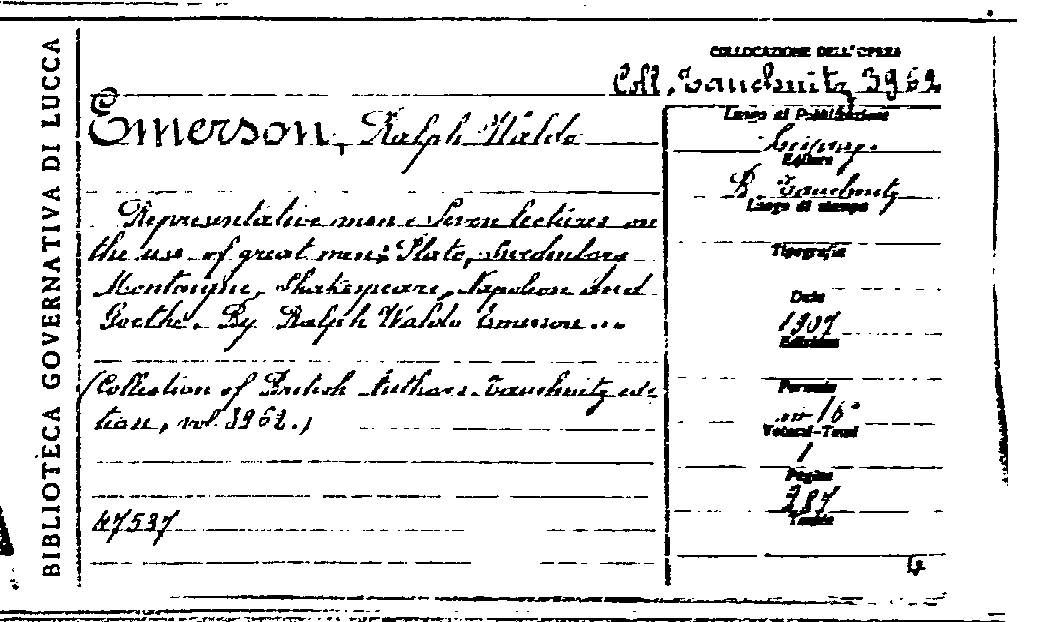 BIBLIOTECA GOVERNATIVA DI LUCCA
COLLOCAZIONE DELL'OPERA
Coll. Tauchnitz 3962
Emerson, Ralph Waldo
Representative men: Seven lectures on
the use of great men: Plato, Swedenborg
Montaigne, Shakespeare, Napoleon and
Goethe. By Ralph Waldo Emerson...
(Collection of British Authors. Tauchnitz edi-
tion, vol. 3962.)
47537
Luogo di Pubblicazione
Leipzig.
Editore
B. Tauchnitz
Luogo di stampa
Tipografia
Data
1907
Edizione
Formato
in 16°
Volumi-Tomi
1
Pagine
287
Tavole